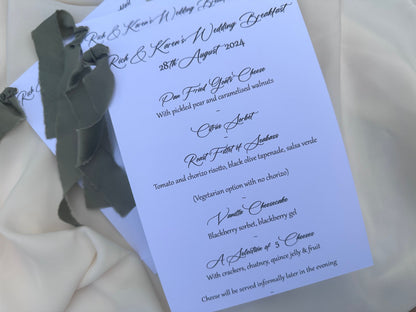 Rick & Karen's Wedding Breakfast
Rick & Karen's Wedding Breakfast
28th August 2024
Pan Fried Goats Cheese
With pickled pear and caramelised walnuts
~
Citrus Sorbet
~
Roast Fillet of Seabass
Tomato and chorizo risotto, black olive tapenade, salsa verde
(Vegetarian option with no chorizo)
~
Vanilla Cheesecake
Blackberry sorbet, blackberry gel
~
A Selection of 3 Cheeses
With crackers, chutney, quince jelly & fruit
Cheese will be served informally later in the evening
~